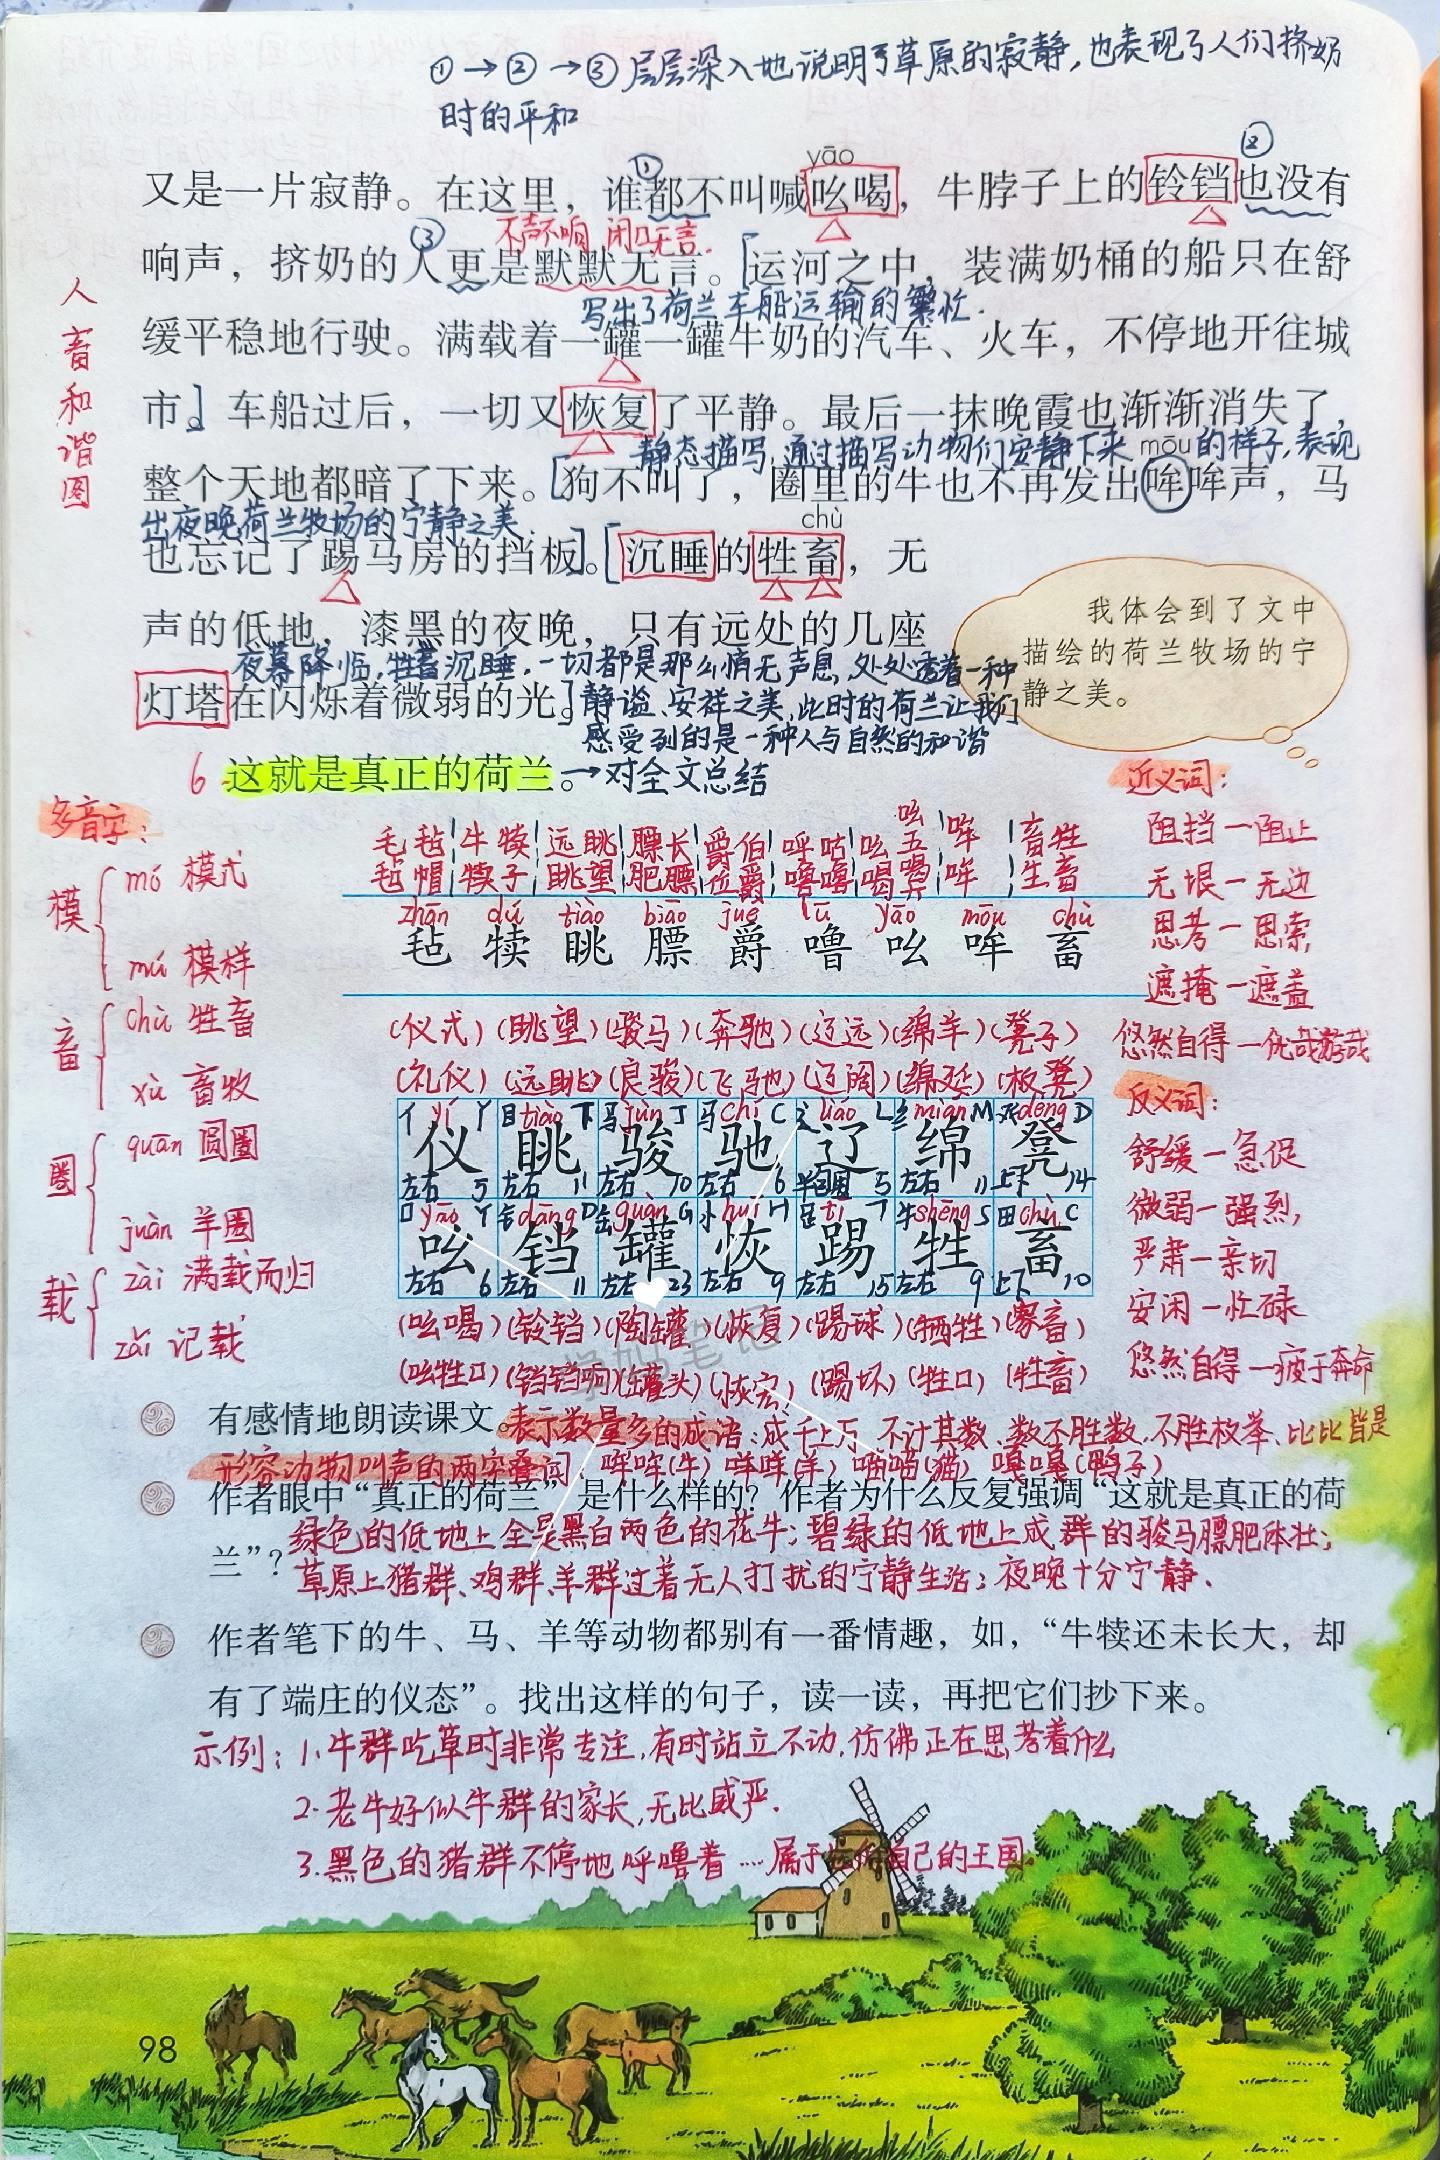 ①→②→③层层深入地说明了草原的寂静,也表现了人们挤奶
时的平和
① yāo ②
又是一片寂静。在这里，谁都不叫喊吆喝，牛脖子上的铃铛也没有
③ 不声不响 闭口无言.
响声，挤奶的人更是默默无言。[运河之中，装满奶桶的船只在舒
写出了荷兰车船运输的繁忙.
缓平稳地行驶。满载着一罐一罐牛奶的汽车、火车，不停地开往城
市。]车船过后，一切又恢复了平静。最后一抹晚霞也渐渐消失了，
静态描写,通过描写动物们安静下来 mōu 的样子,表现
整个天地都暗了下来。[狗不叫了，圈里的牛也不再发出哞哞声，马
出夜晚荷兰牧场的宁静之美. chù
也忘记了踢马房的挡板]。[沉睡的牲畜，无
声的低地，漆黑的夜晚，只有远处的几座
夜幕降临,牲畜沉睡,一切都是那么悄无声息,处处透着一种
灯塔在闪烁着微弱的光。]静谧、安祥之美,此时的荷兰让我们
感受到的是一种人与自然的和谐
人畜和谐图
我体会到了文中
描绘的荷兰牧场的宁
静之美。
6 这就是真正的荷兰。→对全文总结
多音字:
模 mó 模式
mú 模样
畜 chù 牲畜
xù 畜牧
圈 quān 圆圈
juàn 羊圈
载 zài 满载而归
zǎi 记载
毛毡 牛犊 远眺 膘长 爵伯 呼咕 吆五 哞 畜牲
毡帽 犊子 眺望 肥膘 位爵 噜噜 吆喝 哞 生畜
zhān dú tiào biāo jué lū yāo mōu chù
毡 犊 眺 膘 爵 噜 吆 哞 畜
(仪式)(眺望)(骏马)(奔驰)(辽远)(绵羊)(凳子)
(礼仪)(远眺)(良骏)(飞驰)(辽阔)(绵延)(板凳)
亻yí Y 目tiào T 马jùn J 马chí C 辶liáo L 纟mián M dèng D
仪 眺 骏 驰 辽 绵 凳
左右 5 左右 11 左右 10 左右 6 半包围 5 左右 11 上下 14
口yāo Y 钅dāng D 缶guàn G 忄huī H 足tī T 牛shēng S 田chù C
吆 铛 罐 恢 踢 牲 畜
左右 6 左右 11 左右 23 左右 9 左右 15 左右 9 上下 10
(吆喝)(铃铛)(陶罐)(恢复)(踢球)(牺牲)(家畜)
(吆牲口)(铛铛响)(罐头)(恢宏)(踢坏)(牲口)(牲畜)
近义词:
阻挡一阻止
无垠一无边
思考一思索
遮掩一遮盖
悠然自得一优哉游哉
反义词:
舒缓一急促
微弱一强烈,
严肃一亲切
安闲一忙碌
悠然自得一疲于奔命
有感情地朗读课文。表示数量多的成语:成千上万 不计其数 数不胜数,不胜枚举、比比皆是
形容动物叫声的两字叠词:哞哞(牛) 咩咩(羊) 喵喵(猫) 嘎嘎(鸭子)
作者眼中“真正的荷兰”是什么样的？作者为什么反复强调“这就是真正的荷
绿色的低地上全是黑白两色的花牛;碧绿的低地上成群的骏马膘肥体壮;
兰”？
草原上猪群、鸡群、羊群过着无人打扰的宁静生活;夜晚十分宁静.
作者笔下的牛、马、羊等动物都别有一番情趣，如，“牛犊还未长大，却
有了端庄的仪态”。找出这样的句子，读一读，再把它们抄下来。
示例:1.牛群吃草时非常专注,有时站立不动,仿佛正在思考着什么
2.老牛好似牛群的家长,无比威严.
3.黑色的猪群不停地呼噜着…属于他们自己的王国.
98
学好笔记